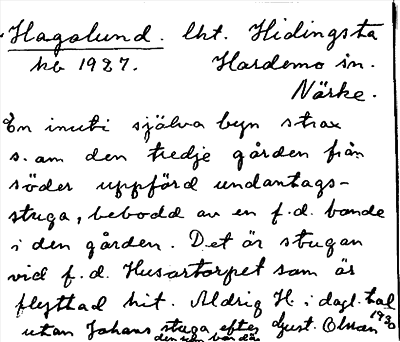 Hagalund. lht. Hidingsta
kb 1927. Hardemo sn.
Närke.
En inuti själva byn strax
s. om den tredje gården från
söder uppförd undantags-
stuga, bebodd av en f.d. bonde
i den gården. Det är stugan
vid f.d. Husartorpet som är
flyttad hit. Aldrig H. i dagl. tal
utan Johans stuga efter Johan Olsson 1930